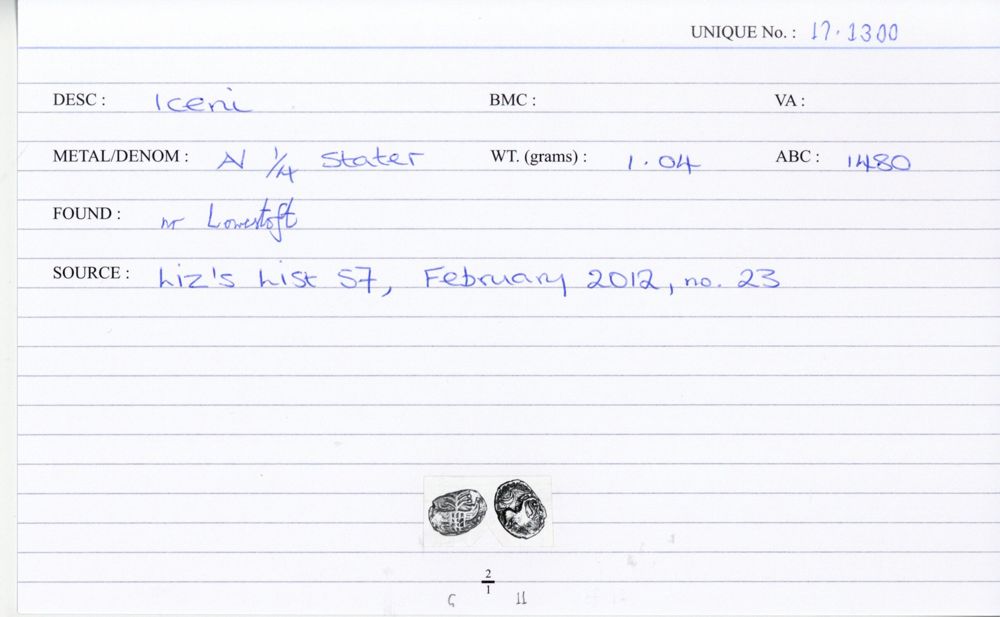 UNIQUE No. : 17.1300
DESC : Iceni BMC : VA :
METAL/DENOM : N 1/4 Stater WT. (grams) : 1.04 ABC : 1480
FOUND : nr Lowestoft
SOURCE : Liz's List 57, February 2012, no. 23
2
1
G 11